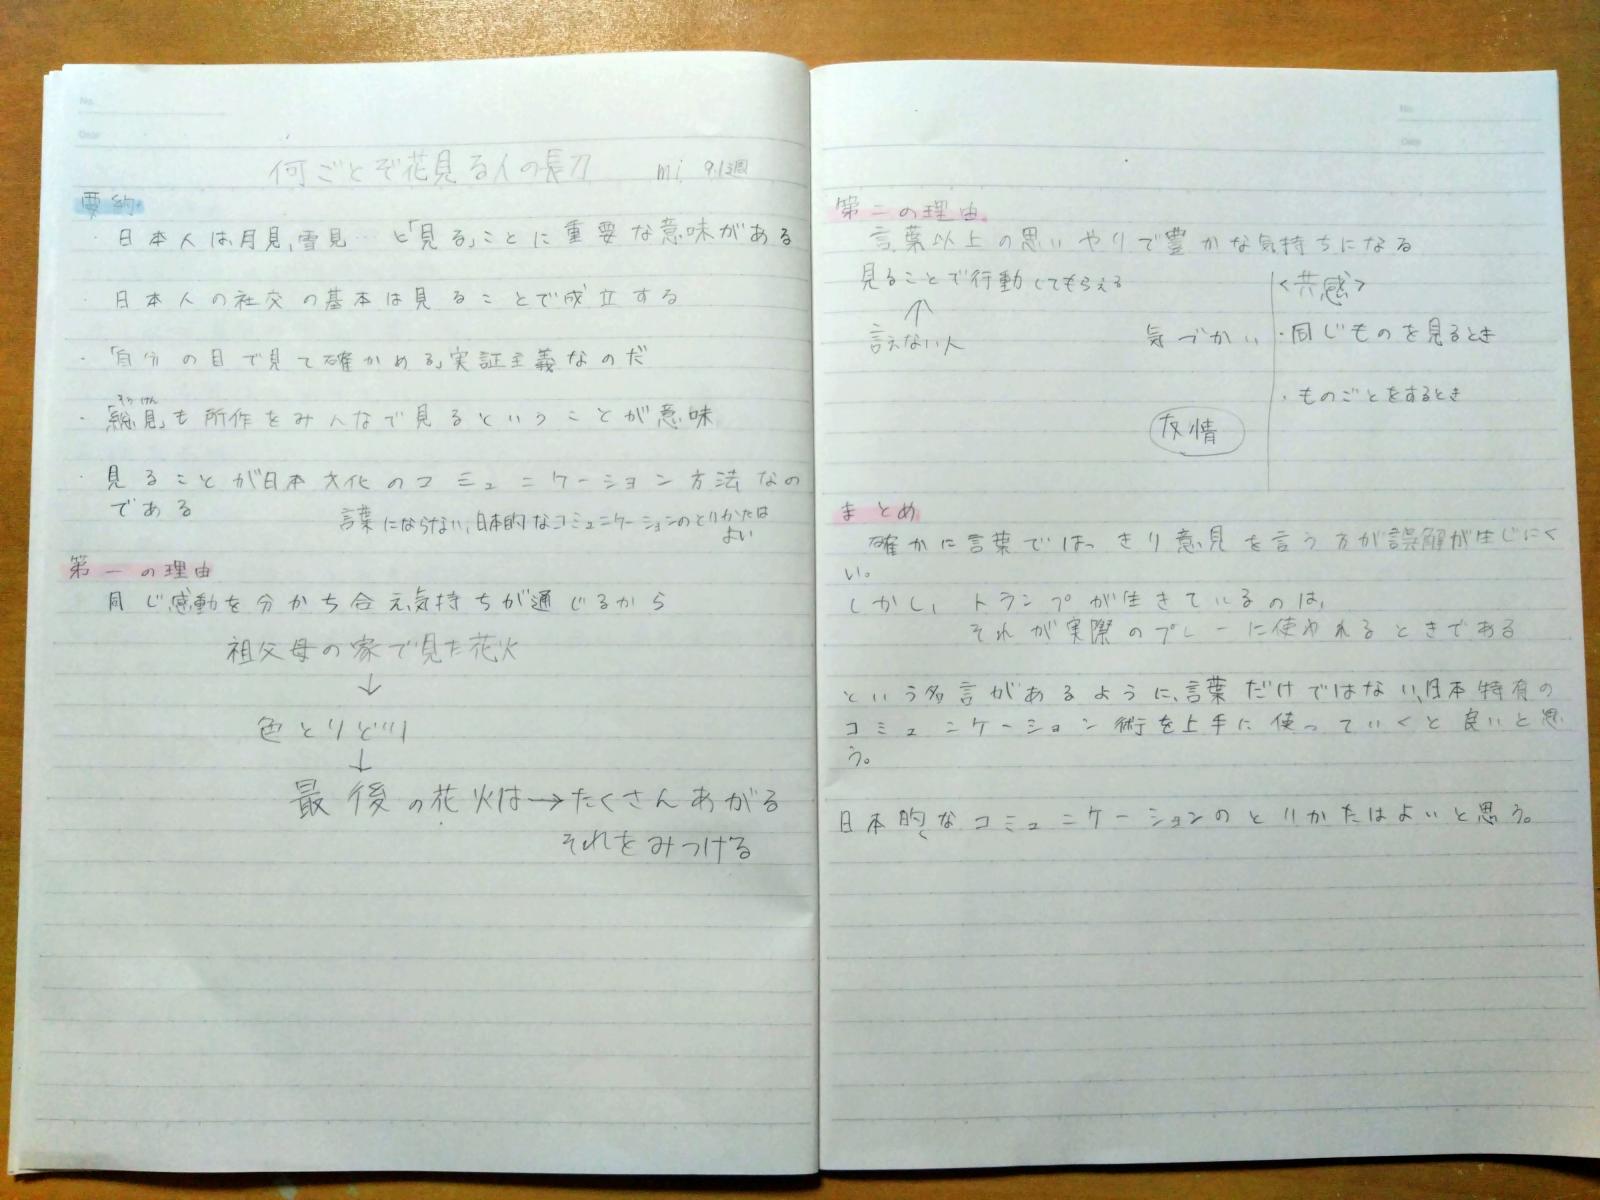 No.
Date
何ごとぞ花見る人の長刀 mi 9.1週
要約
・日本人は、月見、雪見…と「見る」ことに重要な意味がある
・日本人の社交の基本は見ることで成立する
・「自分の目で見て確かめる」実証主義なのだ
そうけん
・「総見」も所作をみんなで見るということが意味
・見ることが日本文化のコミュニケーション方法なの
である
言葉にならない、日本的なコミュニケーションのとりかたは
よい
第一の理由
同じ感動を分かち合え、気持ちが通じるから
祖父母の家で見た花火
↓
色とりどり
↓
最後の花火は→たくさんあがる
それをみつける
No.
Date
第二の理由
言葉以上の思いやりで豊かな気持ちになる
見ることで行動してもらえる
↑
言えない人
気づかい
友情
<共感>
・同じものを見るとき
・ものごとをするとき
まとめ
確かに言葉ではっきり意見を言う方が誤解が生じにく
い。
しかし、トランプが生きているのは、
それが実際のプレーに使われるときである
という名言があるように、言葉だけではない、日本特有の
コミュニケーション術を上手に使っていくと良いと思
う。
日本的なコミュニケーションのとりかたはよいと思う。